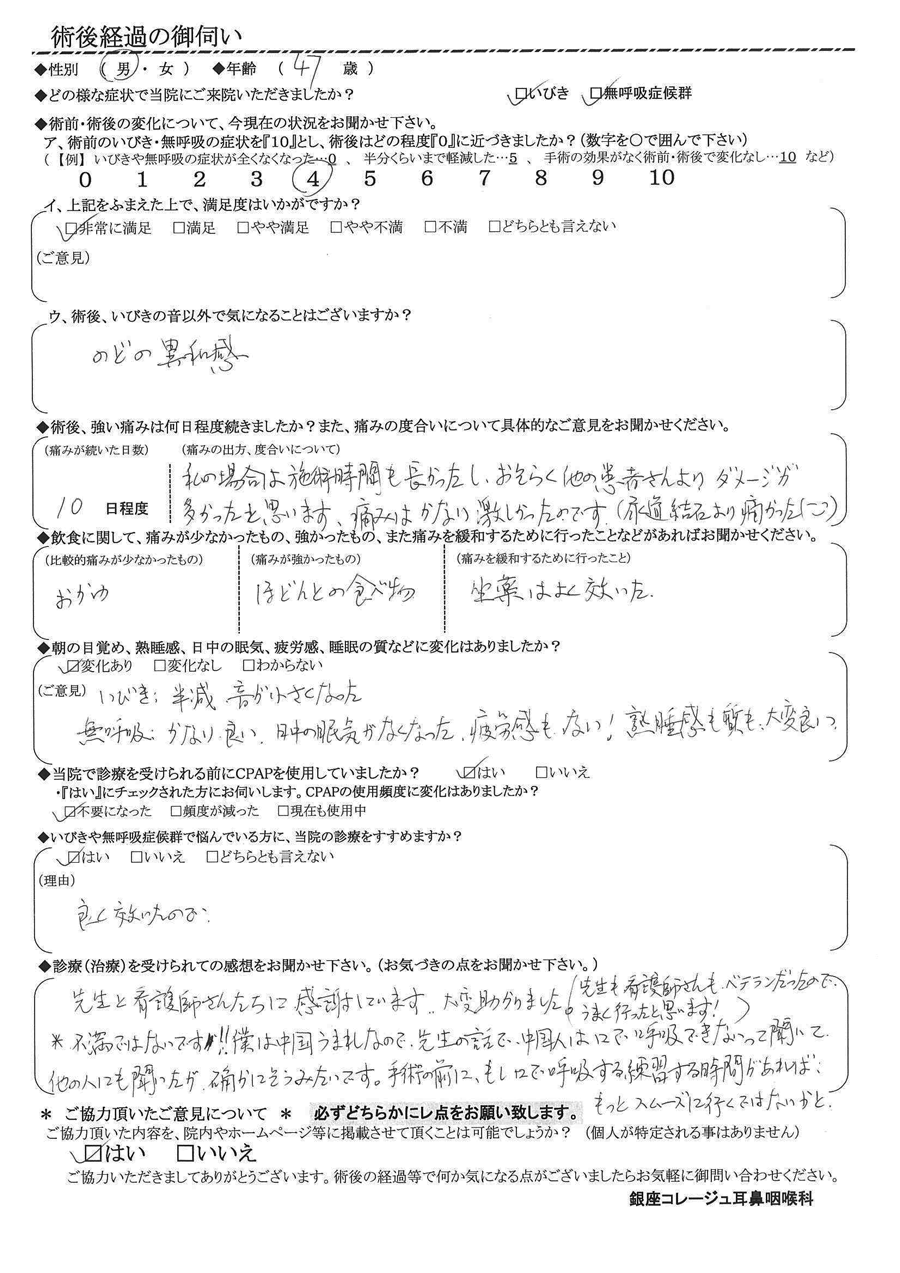 術後経過の御伺い
◆性別 （ 男 ・ 女 ） ◆年齢 （ 47 歳 ）
◆どの様な症状で当院にご来院いただきましたか？ ☑いびき ☑無呼吸症候群
◆術前・術後の変化について、今現在の状況をお聞かせ下さい。
ア、術前のいびき・無呼吸の症状を『10』とし、術後はどの程度『0』に近づきましたか？（数字を〇で囲んで下さい）
（【例】いびきや無呼吸の症状が全くなくなった…0 、 半分くらいまで軽減した…5 、 手術の効果がなく術前・術後で変化なし…10 など）
0 1 2 3 4 5 6 7 8 9 10
イ、上記をふまえた上で、満足度はいかがですか？
☑非常に満足 □満足 □やや満足 □やや不満 □不満 □どちらとも言えない
（ご意見）
ウ、術後、いびきの音以外で気になることはございますか？
のどの異和感
◆術後、強い痛みは何日程度続きましたか？また、痛みの度合いについて具体的なご意見をお聞かせください。
（痛みが続いた日数） （痛みの出方、度合いについて）
私の場合は施術時間も長かったし、おそらく他の患者さんよりダメージが
10 日程度 多かったと思います、痛みはかなり激しかったのです。（尿道結石より痛かった
◆飲食に関して、痛みが少なかったもの、強かったもの、また痛みを緩和するために行ったことなどがあればお聞かせください。
（比較的痛みが少なかったもの） （痛みが強かったもの） （痛みを緩和するために行ったこと）
おかゆ ほどんとの食べ物 坐薬はよく効いた.
◆朝の目覚め、熟睡感、日中の眠気、疲労感、睡眠の質などに変化はありましたか？
☑変化あり □変化なし □わからない
（ご意見） いびき: 半減 音が小さくなった
無呼吸: かなり良い、日中の眠気がなくなった、疲労感もない! 熟睡感も質も、大変良い
◆当院で診療を受けられる前にCPAPを使用していましたか？ ☑はい □いいえ
・『はい』にチェックされた方にお伺いします。CPAPの使用頻度に変化はありましたか？
☑不要になった □頻度が減った □現在も使用中
◆いびきや無呼吸症候群で悩んでいる方に、当院の診療をすすめますか？
☑はい □いいえ □どちらとも言えない
（理由）
良く効いたので.
◆診療（治療）を受けられての感想をお聞かせ下さい。（お気づきの点をお聞かせ下さい。）
先生と看護師さんたちに感謝しています、大変助かりました。（先生も看護師さんも、ベテランだったので、
うまく行ったと思います!）
* 不満ではないです!!僕は中国うまれなので、先生の話で、中国人は口で呼吸できないって聞いて
他の人にも聞いたが、確かにそうみたいです。手術の前に、もし口で呼吸する練習する時間があれば、
もっとスムーズに行くではないかと.
＊ ご協力頂いたご意見について ＊ 必ずどちらかにレ点をお願い致します。
ご協力頂いた内容を、院内やホームページ等に掲載させて頂くことは可能でしょうか？ （個人が特定される事はありません）
☑はい □いいえ
ご協力いただきましてありがとうございます。術後の経過等で何か気になる点がございましたらお気軽に御問い合わせください。
銀座コレージュ耳鼻咽喉科